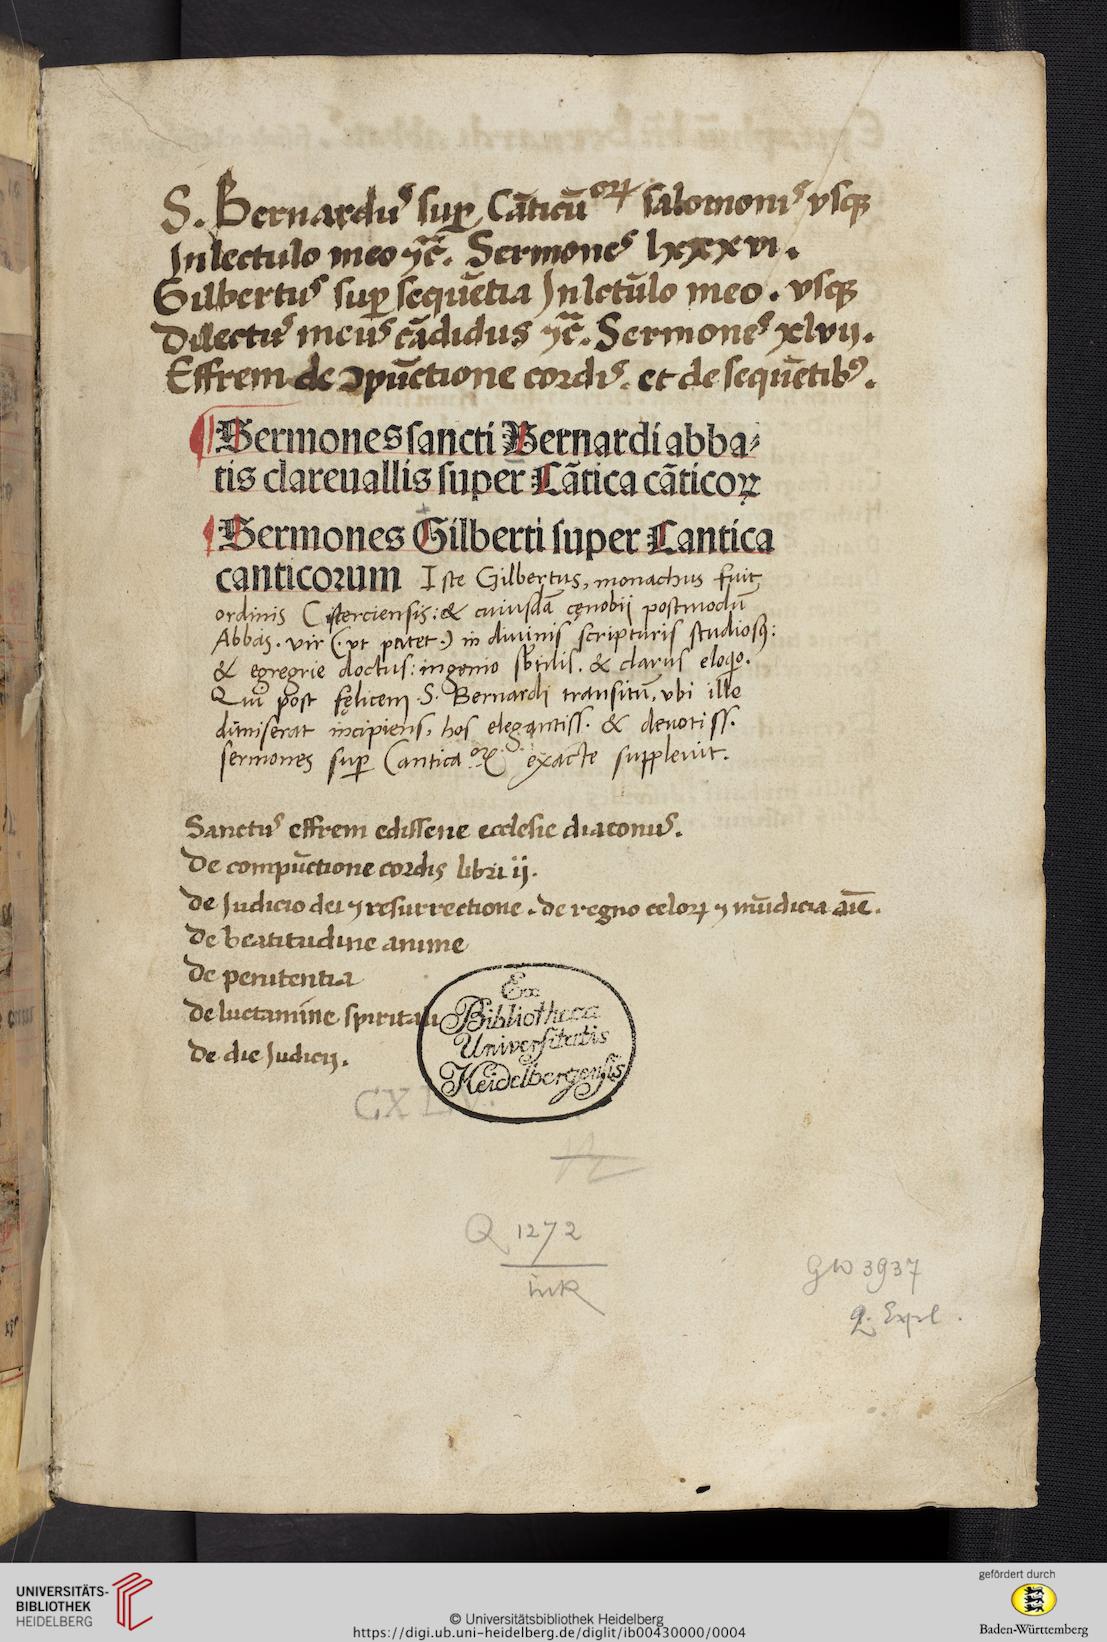 S. Bernardꝰ suꝑ Cāticūoꝝ salomonis vsqꝫ
In lectulo meo ⁊c̄. Sermones lxxxvi.
Gilbertus suꝑ sequētia In lctūlo meo. vsqꝫ
Dilectus meus cādidus ⁊c̄. Sermones xlvij.
Effrem de ꝯpūctione cordis. et de sequētibꝰ.
¶ Sermones sancti Bernardi abba⸗
tis clareuallis super Cātica cāticoꝝ
¶ Sermones Gilberti super Cantica
canticorum Iste Gilbertus, monachus fuit
ordinis Cisterciensis: & cuiusdā cęnobij postmodū
Abbas. vir (. vt patet.) in diuinis scripturis studiosꝰ:
& egregrie doctus: ingenio sb̄tilis. & clarus eloqo.
Qui post fęlicem S. Bernardi transitum, vbi ille
dimiserat incipiens, hos elegantiss. & deuotiss.
sermones suꝑ Canticaoꝝ exacte suppleuit.
Sanctus effrem edissene ecclesie diaconus.
De compūctione cordis libri ij.
de Iudicio dei ⁊ resurrectione. de regno celoꝝ ⁊ mūdicia aīe.
de beatitudine anime
de penitentia
de luctamine spiritali
de die Iudicij.
Ex
Bibliotheca
Universitatis
Heidelbergensis
CXLIV.
Q 1272
Ink
GW 3937
2. Expl.
UNIVERSITÄTS-
BIBLIOTHEK
HEIDELBERG
© Universitätsbibliothek Heidelberg
https://digi.ub.uni-heidelberg.de/diglit/ib00430000/0004
gefördert durch
Baden-Württemberg